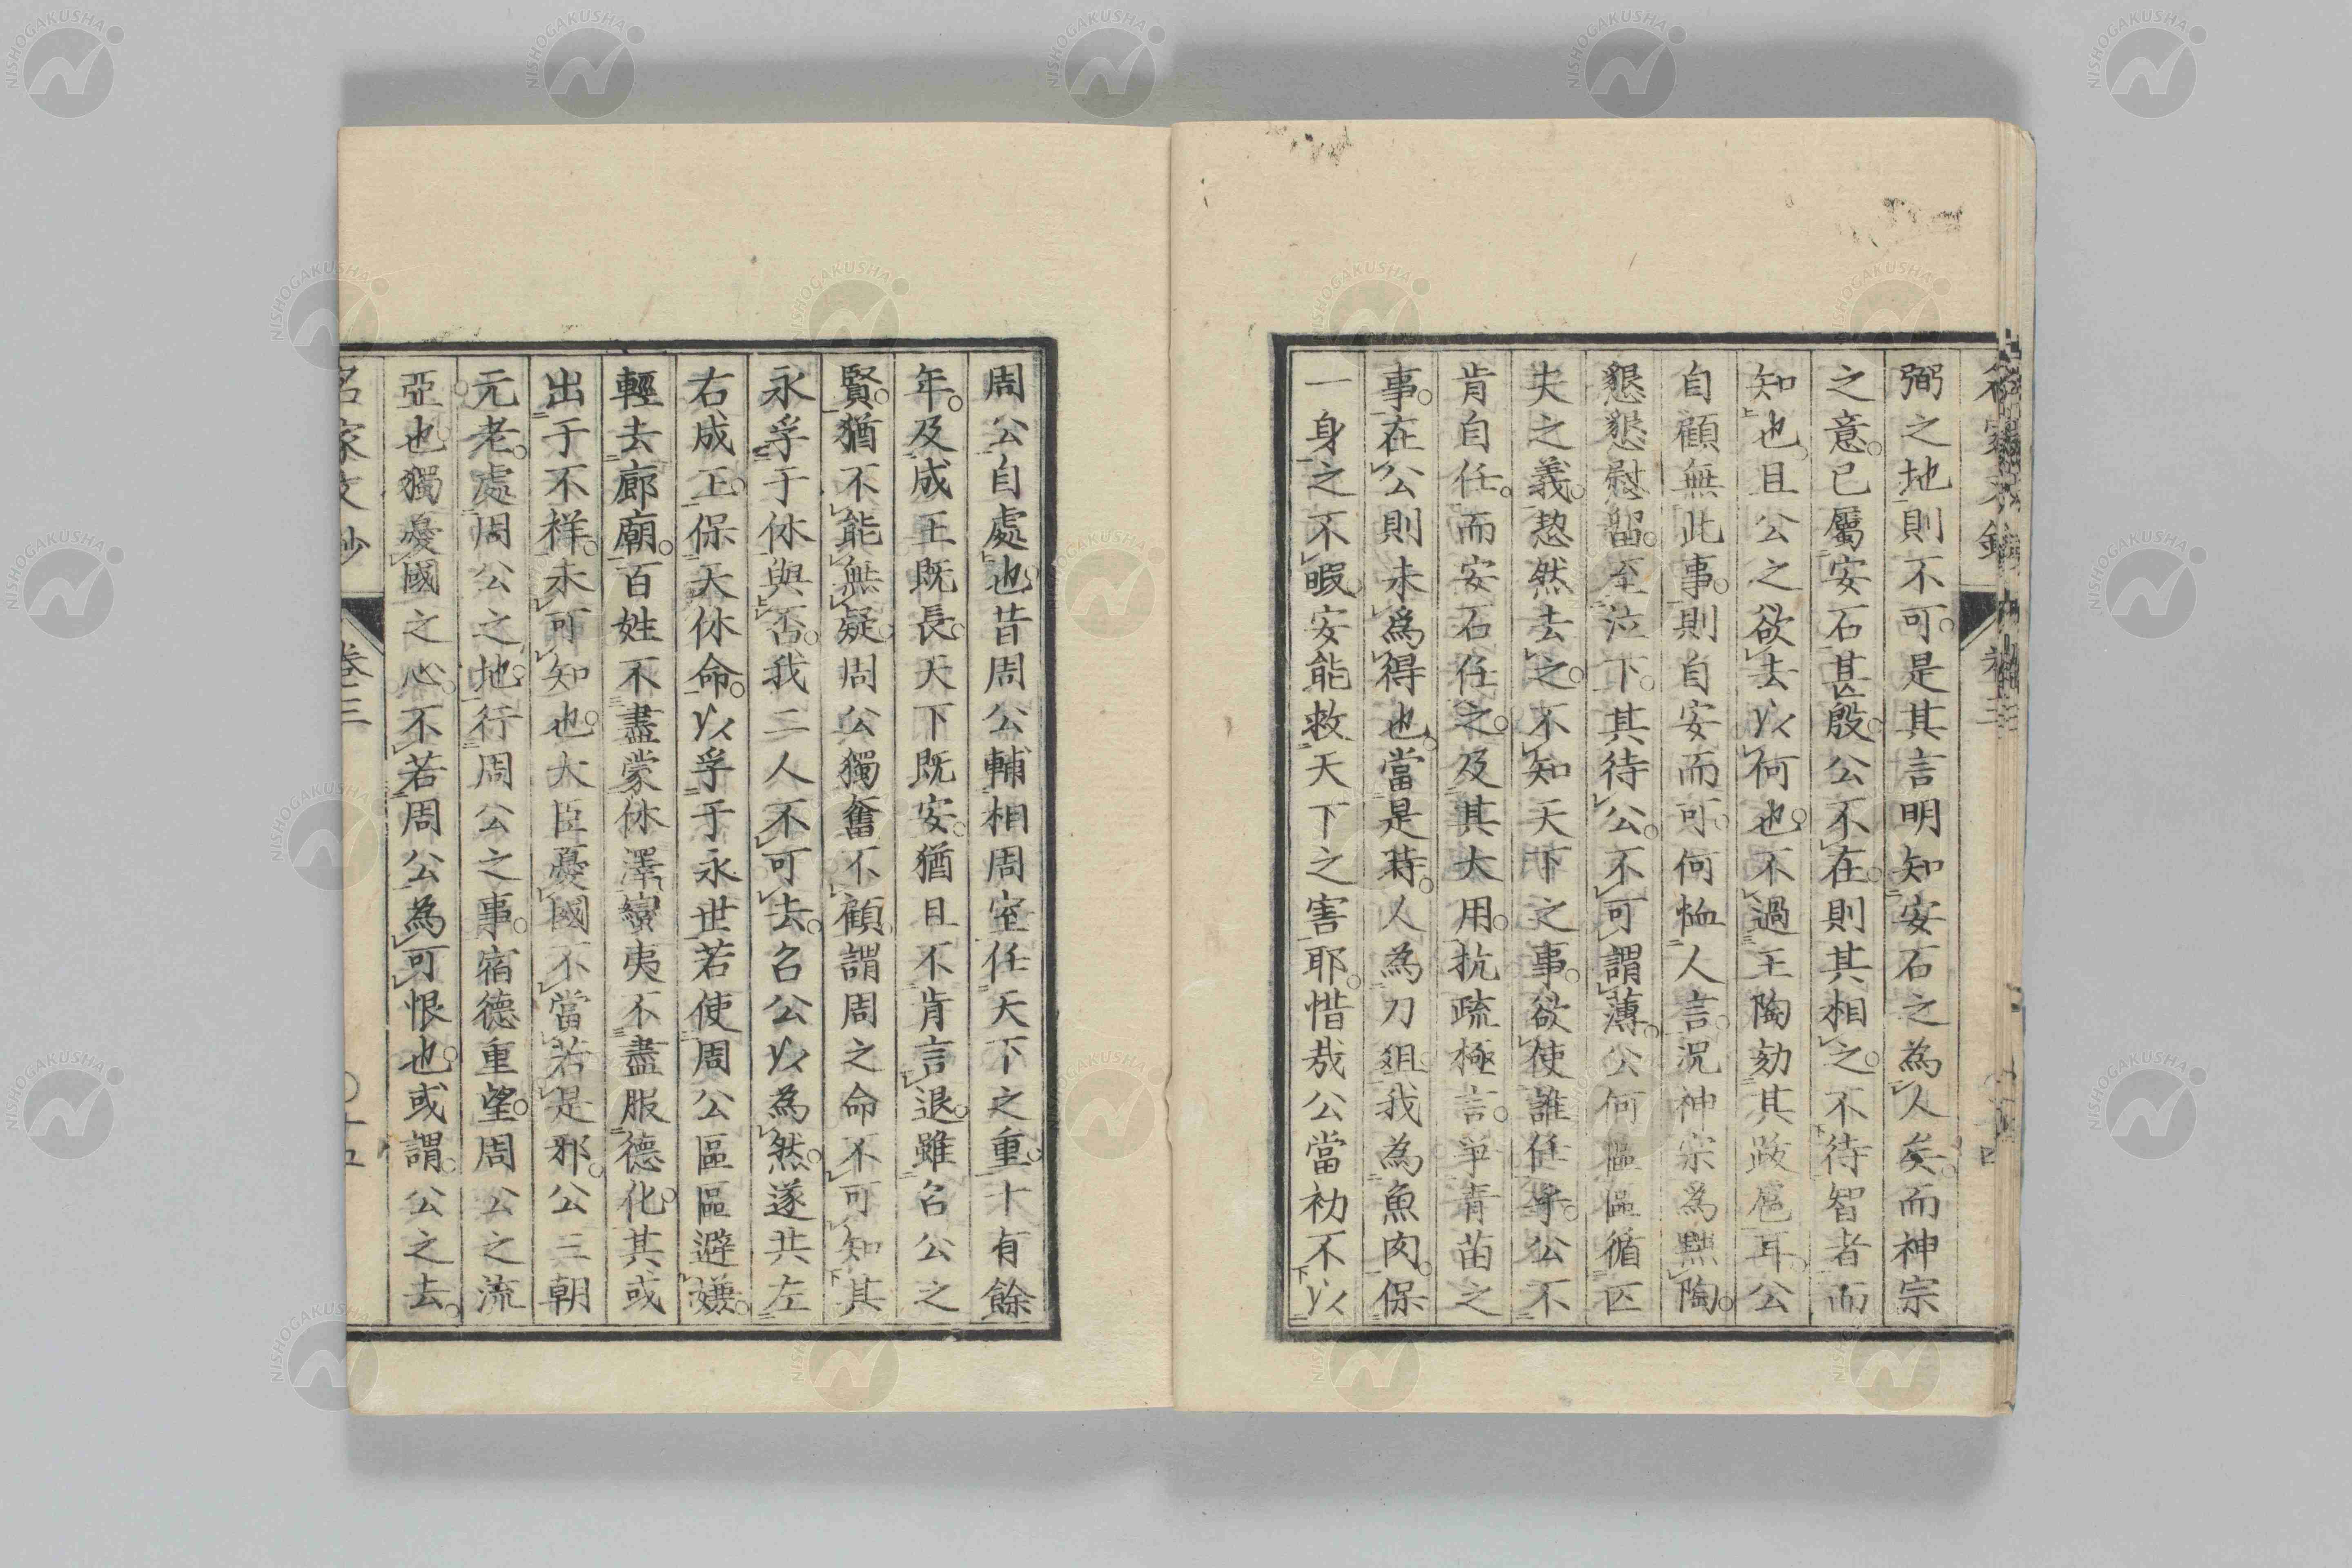 弼之地則不可是其言明知安石之為人矣而神宗
之意已屬安石甚殷公不在則其相之不待智者而
知也且公之欲去以何也不過王陶劾其跋扈耳公
自顧無此事則自安而可何恤人言況神宗為黜陶
懇懇慰留至泣下其待公不可謂薄公何區區循匹
夫之義愸然去之不知天下之事欲使誰任乎公不
肯自任而安石任之及其大用抗疏極言爭青苗之
事在公則未為得也當是時人為刀俎我為魚肉保
一身之不暇安能救天下之害耶惜哉公當初不以
周公自處也昔周公輔相周室任天下之重十有餘
年及成王既長天下既安猶且不肯言退雖召公之
賢猶不能無疑周公獨奮不顧謂周之命不可知其
永孚于休與否我二人不可去召公以為然遂共左
右成王保大休命以孚于永世若使周公區區避嫌
輕去廊廟百姓不盡蒙休澤蠻夷不盡服德化其或
出于不祥未可知也大臣憂國不當若是邪公三朝
元老處周公之地行周公之事宿德重望周公之流
亞也獨憂國之心不若周公為可恨也或謂公之去
名家文抄
卷三
NISHOGAKUSHA